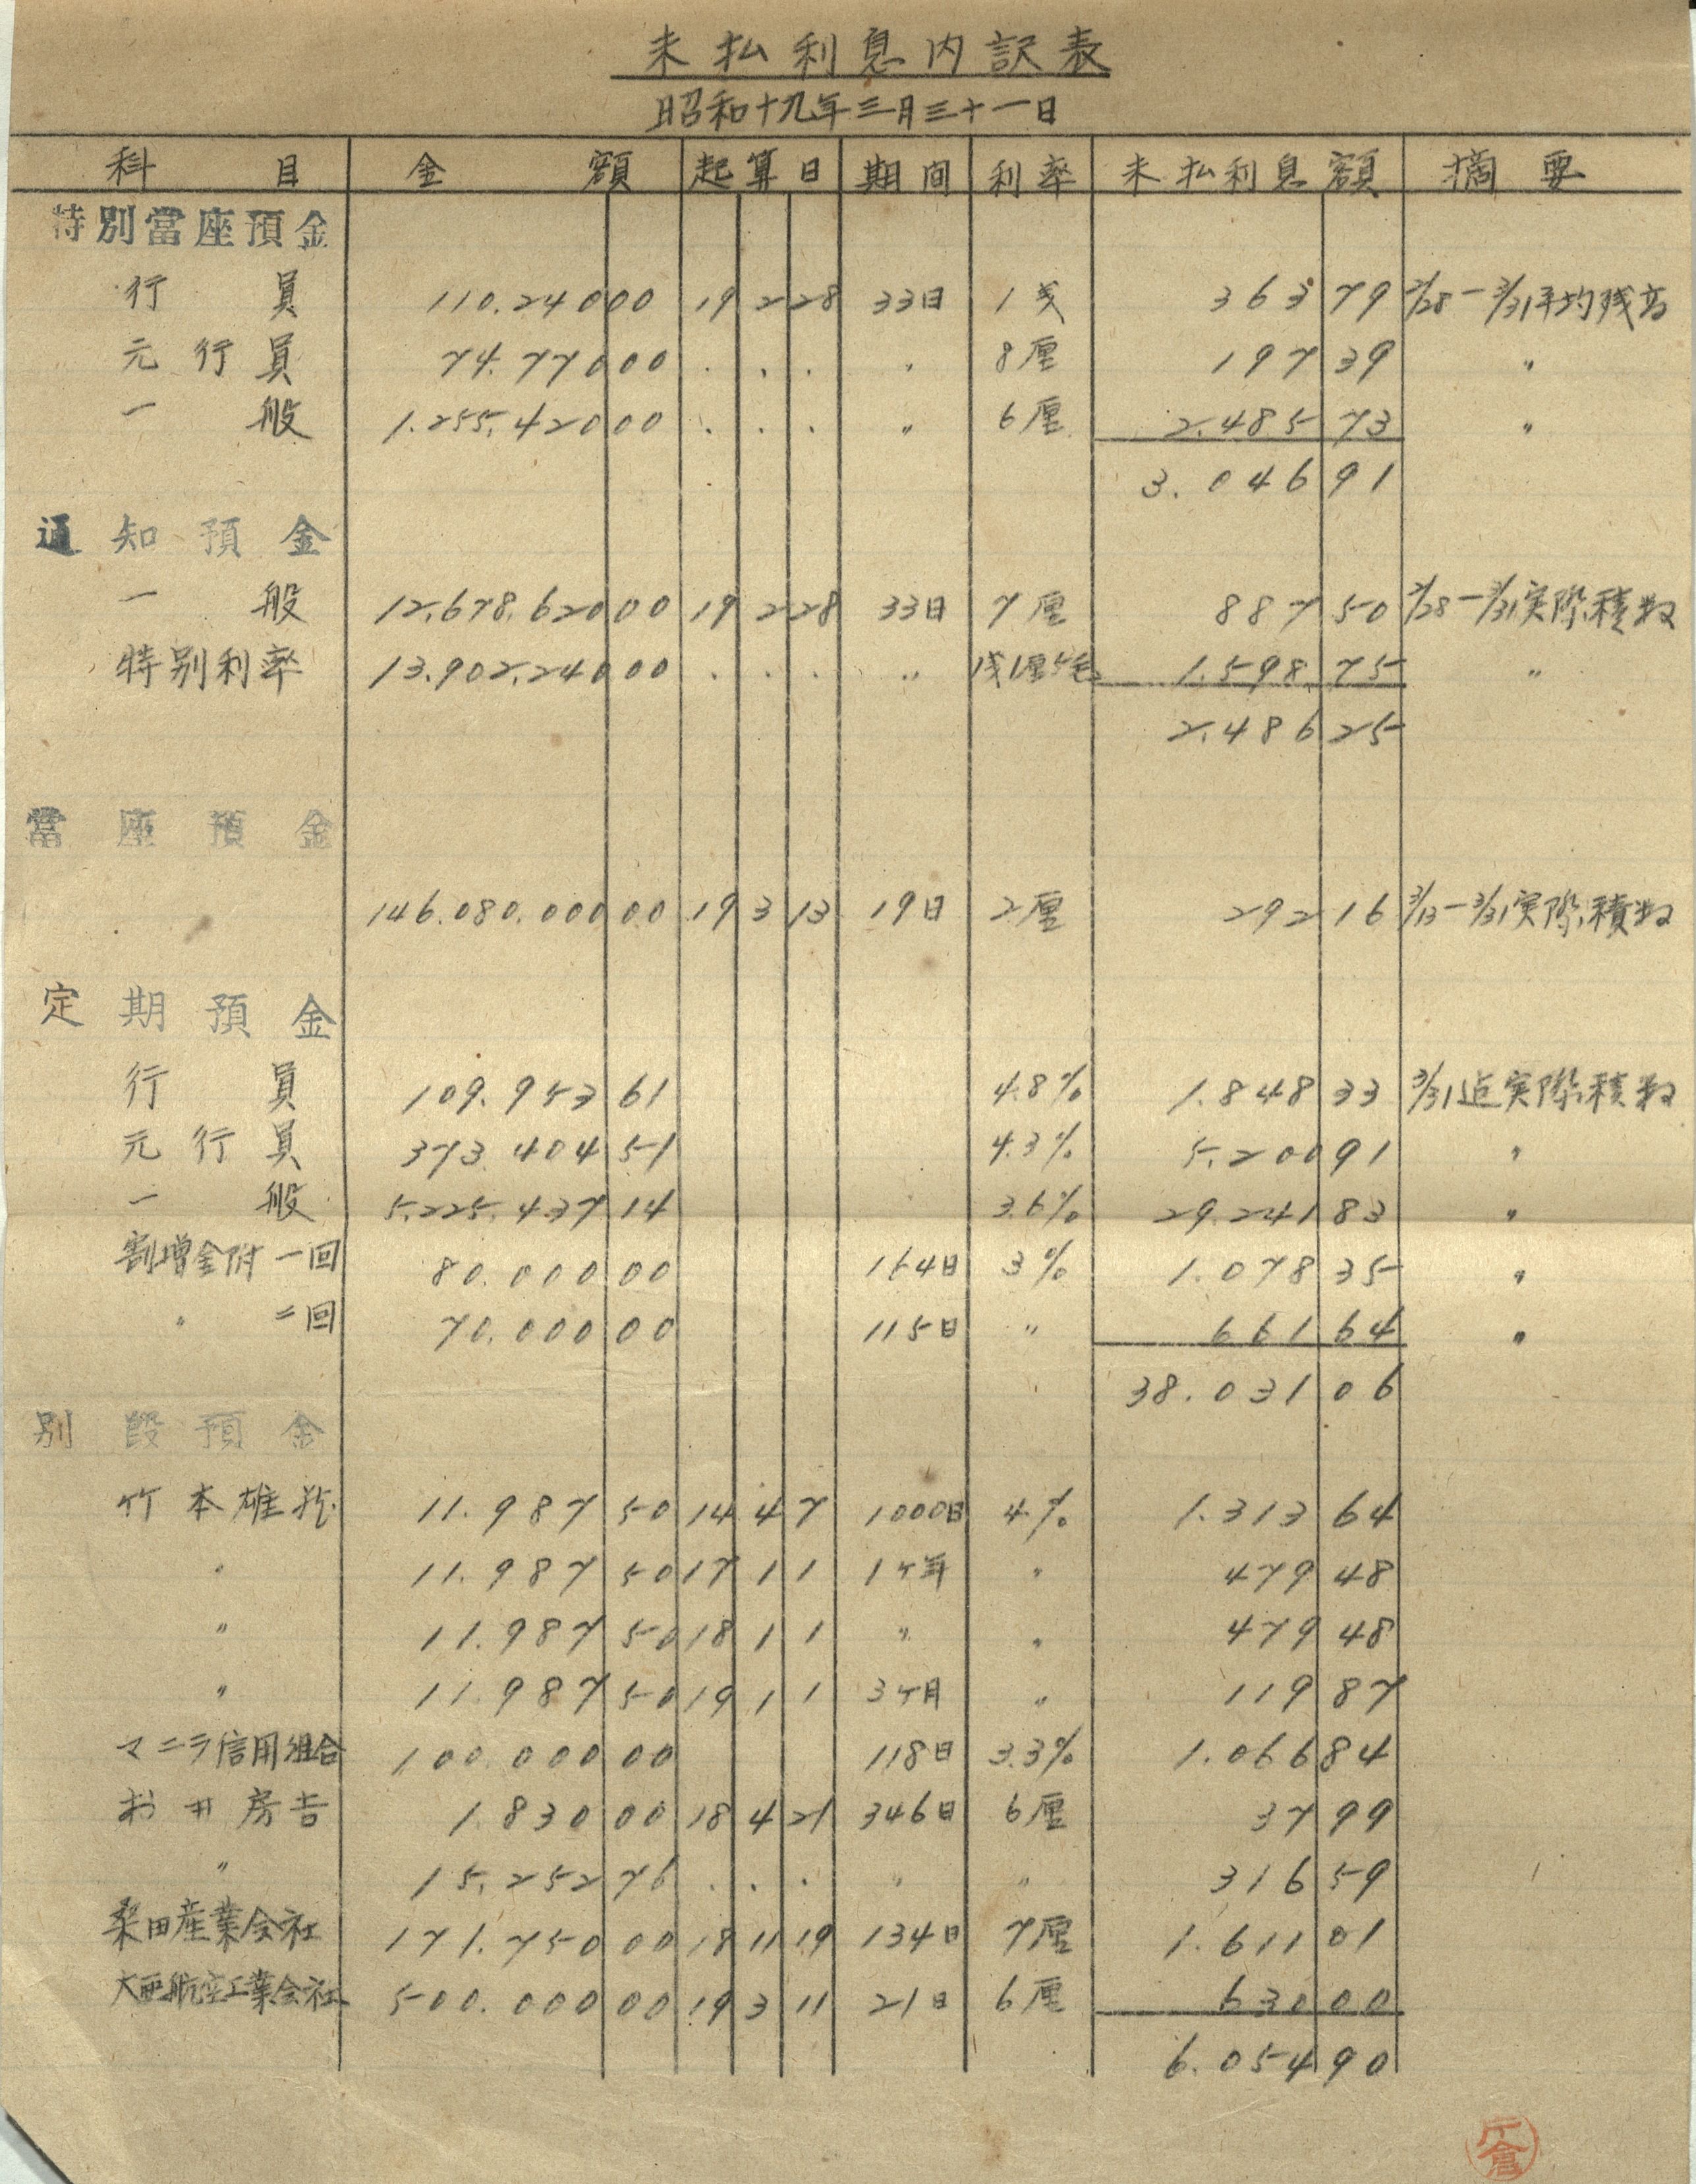 未払利息内訳表
昭和十九年三月三十一日
科目 金額 起算日 期間 利率 未払利息額 摘要
特別當座預金
行員 110.240 00 19 2 28 33日 1戋 363 79 2/28-3/31平均残高
元行員 74.770 00 . . . 〃 8厘 197 39 〃
一般 1.255.420 00 . . . 〃 6厘 2.485 73 〃
3.046 91
通知預金
一般 12.678.620 00 19 2 28 33日 7厘 887 50 2/28-3/31実際積数
特別利率 13.902.240 00 . . . 〃 1戋1厘5毛 1.598 75 〃
2.486 25
當座預金
146.080.000 00 19 3 13 19日 2厘 292 16 3/13-3/31実際積数
定期預金
行員 109.953 61 4.8% 1.848 33 3/31迠実際積数
元行員 373.404 51 4.3% 5.200 91 〃
一般 5.225.437 14 3.6% 29.241 83 〃
割増金附一回 80.000 00 164日 3% 1.078 35 〃
〃 二回 70.000 00 115日 〃 661 64 〃
38.031 06
別段預金
竹本雄 11.987 50 14 4 7 1000日 4% 1.313 64
〃 11.987 50 17 1 1 1ケ年 〃 479 48
〃 11.987 50 18 1 1 〃 〃 479 48
〃 11.987 50 19 1 1 3ケ月 〃 119 87
マニラ信用組合 100.000 00 118日 3.3% 1.066 84
井房吉 1.830 00 18 4 21 346日 6厘 37 99
〃 15.252 76 . . . 〃 〃 316 59
桑田産業会社 171.750 00 18 11 19 134日 7厘 1.611 01
大亜航空工業会社 500.000 00 19 3 11 21日 6厘 630 00
6.054 90